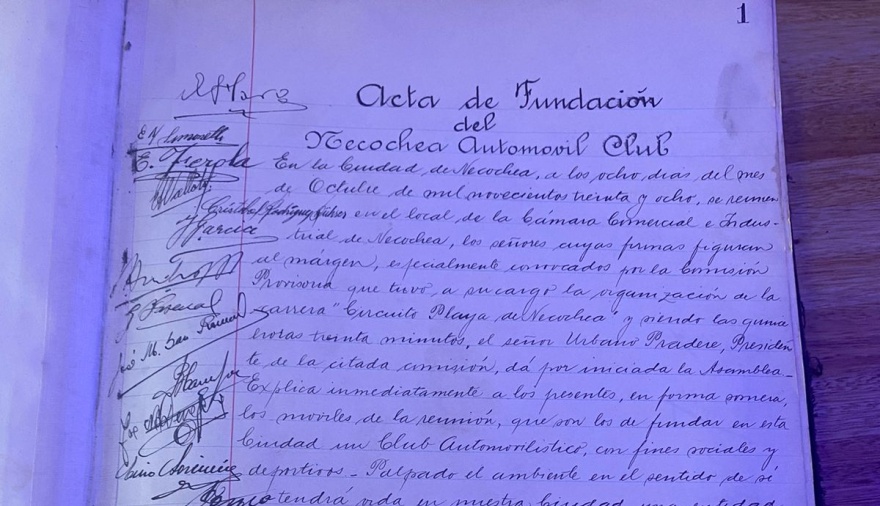 1
Acta de Fundación
del
Necochea Automovil Club
En la Ciudad de Necochea, a los ocho dias del mes
de Octubre de mil novecientos treinta y ocho, se reunen
en el local de la Cámara Comercial e Indus-
trial de Necochea, los señores cuyas firmas figuran
al margen, especialmente convocados por la Comisión
Provisoria que tuvo, a su cargo la organización de la
carrera "Circuito Playa de Necochea" y siendo las quince
horas treinta minutos, el señor Urbano Pradere, Presiden
te de la citada comisión, dá por iniciada la Asamblea-
Explica inmediatamente a los presentes, en forma somera,
los moviles de la reunión, que son los de fundar en esta
Ciudad un Club Automovilistico, con fines sociales y
deportivos - Palpado el ambiente en el sentido de si
tendrá vida en nuestra Ciudad una entidad
E. Fierola
Garcia
José M. San Román